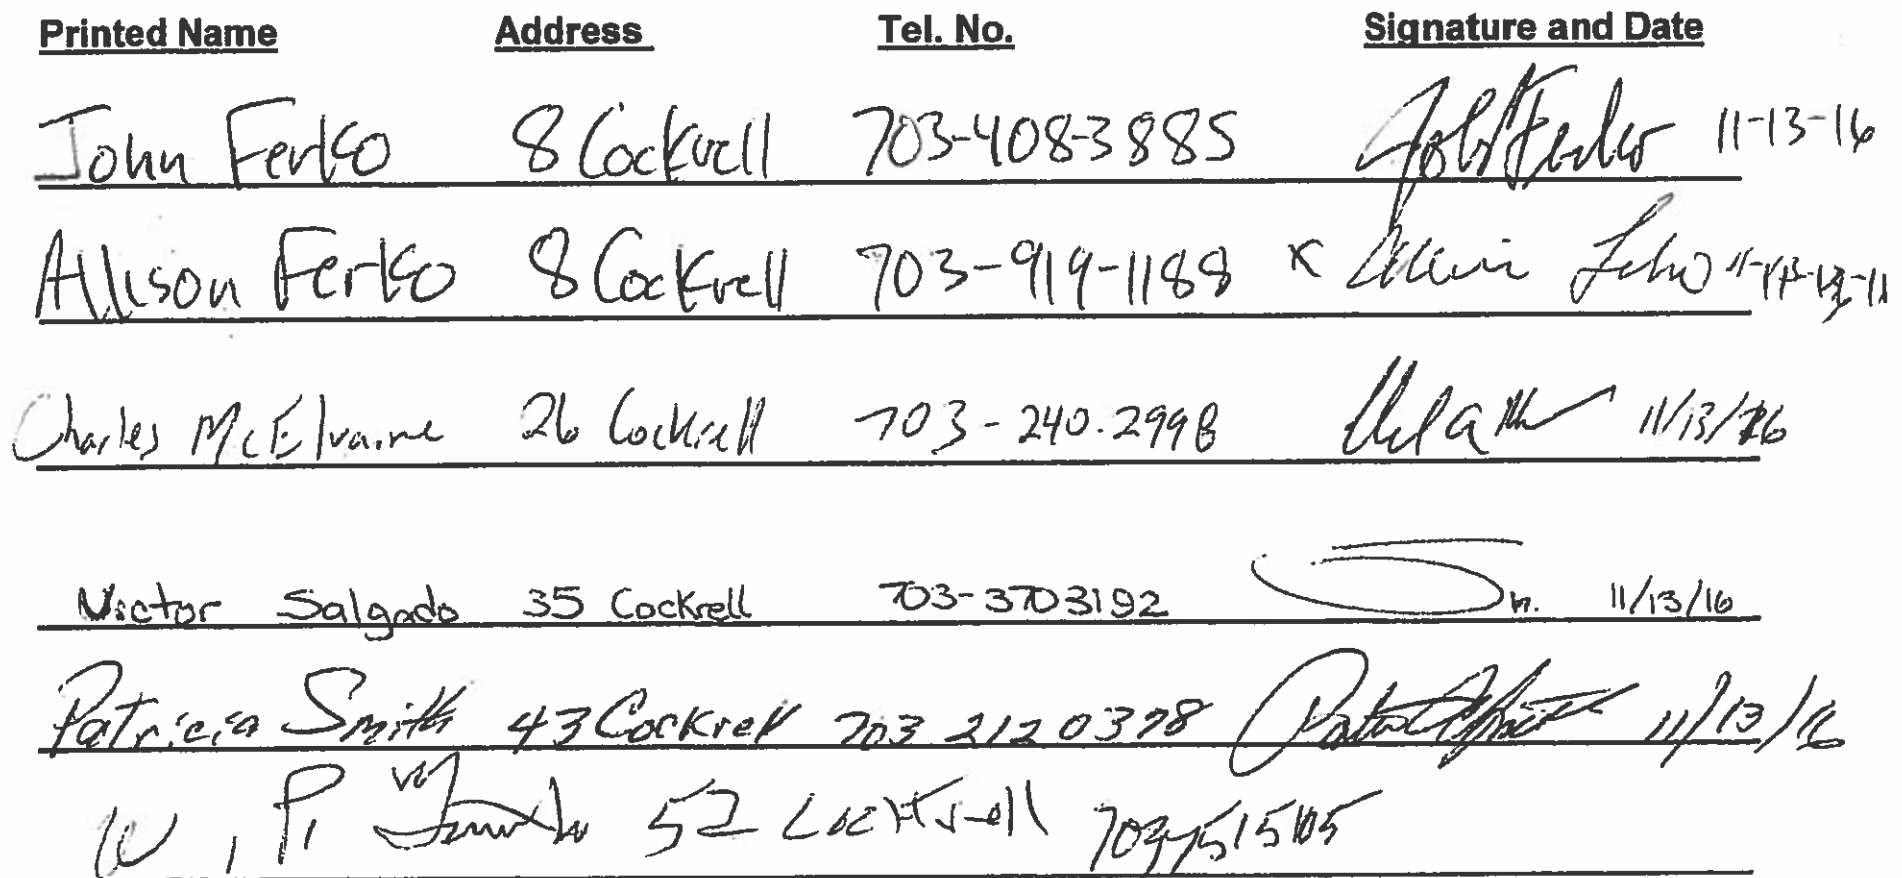 Printed Name Address Tel. No. Signature and Date
John Ferko 8 Cockrell 703-408-3885 John Ferko 11-13-16
Allison Ferko 8 Cockrell 703-919-1188 x Allison Ferko
Charles McElvaine 26 Cockrell 703-240.2998 11/13/16
Victor Salgado 35 Cockrell 703-3703192 11/13/16
Patricia Smith 43 Cockrell 703 212 0378 11/13/16
W, P, 52 Cockrell